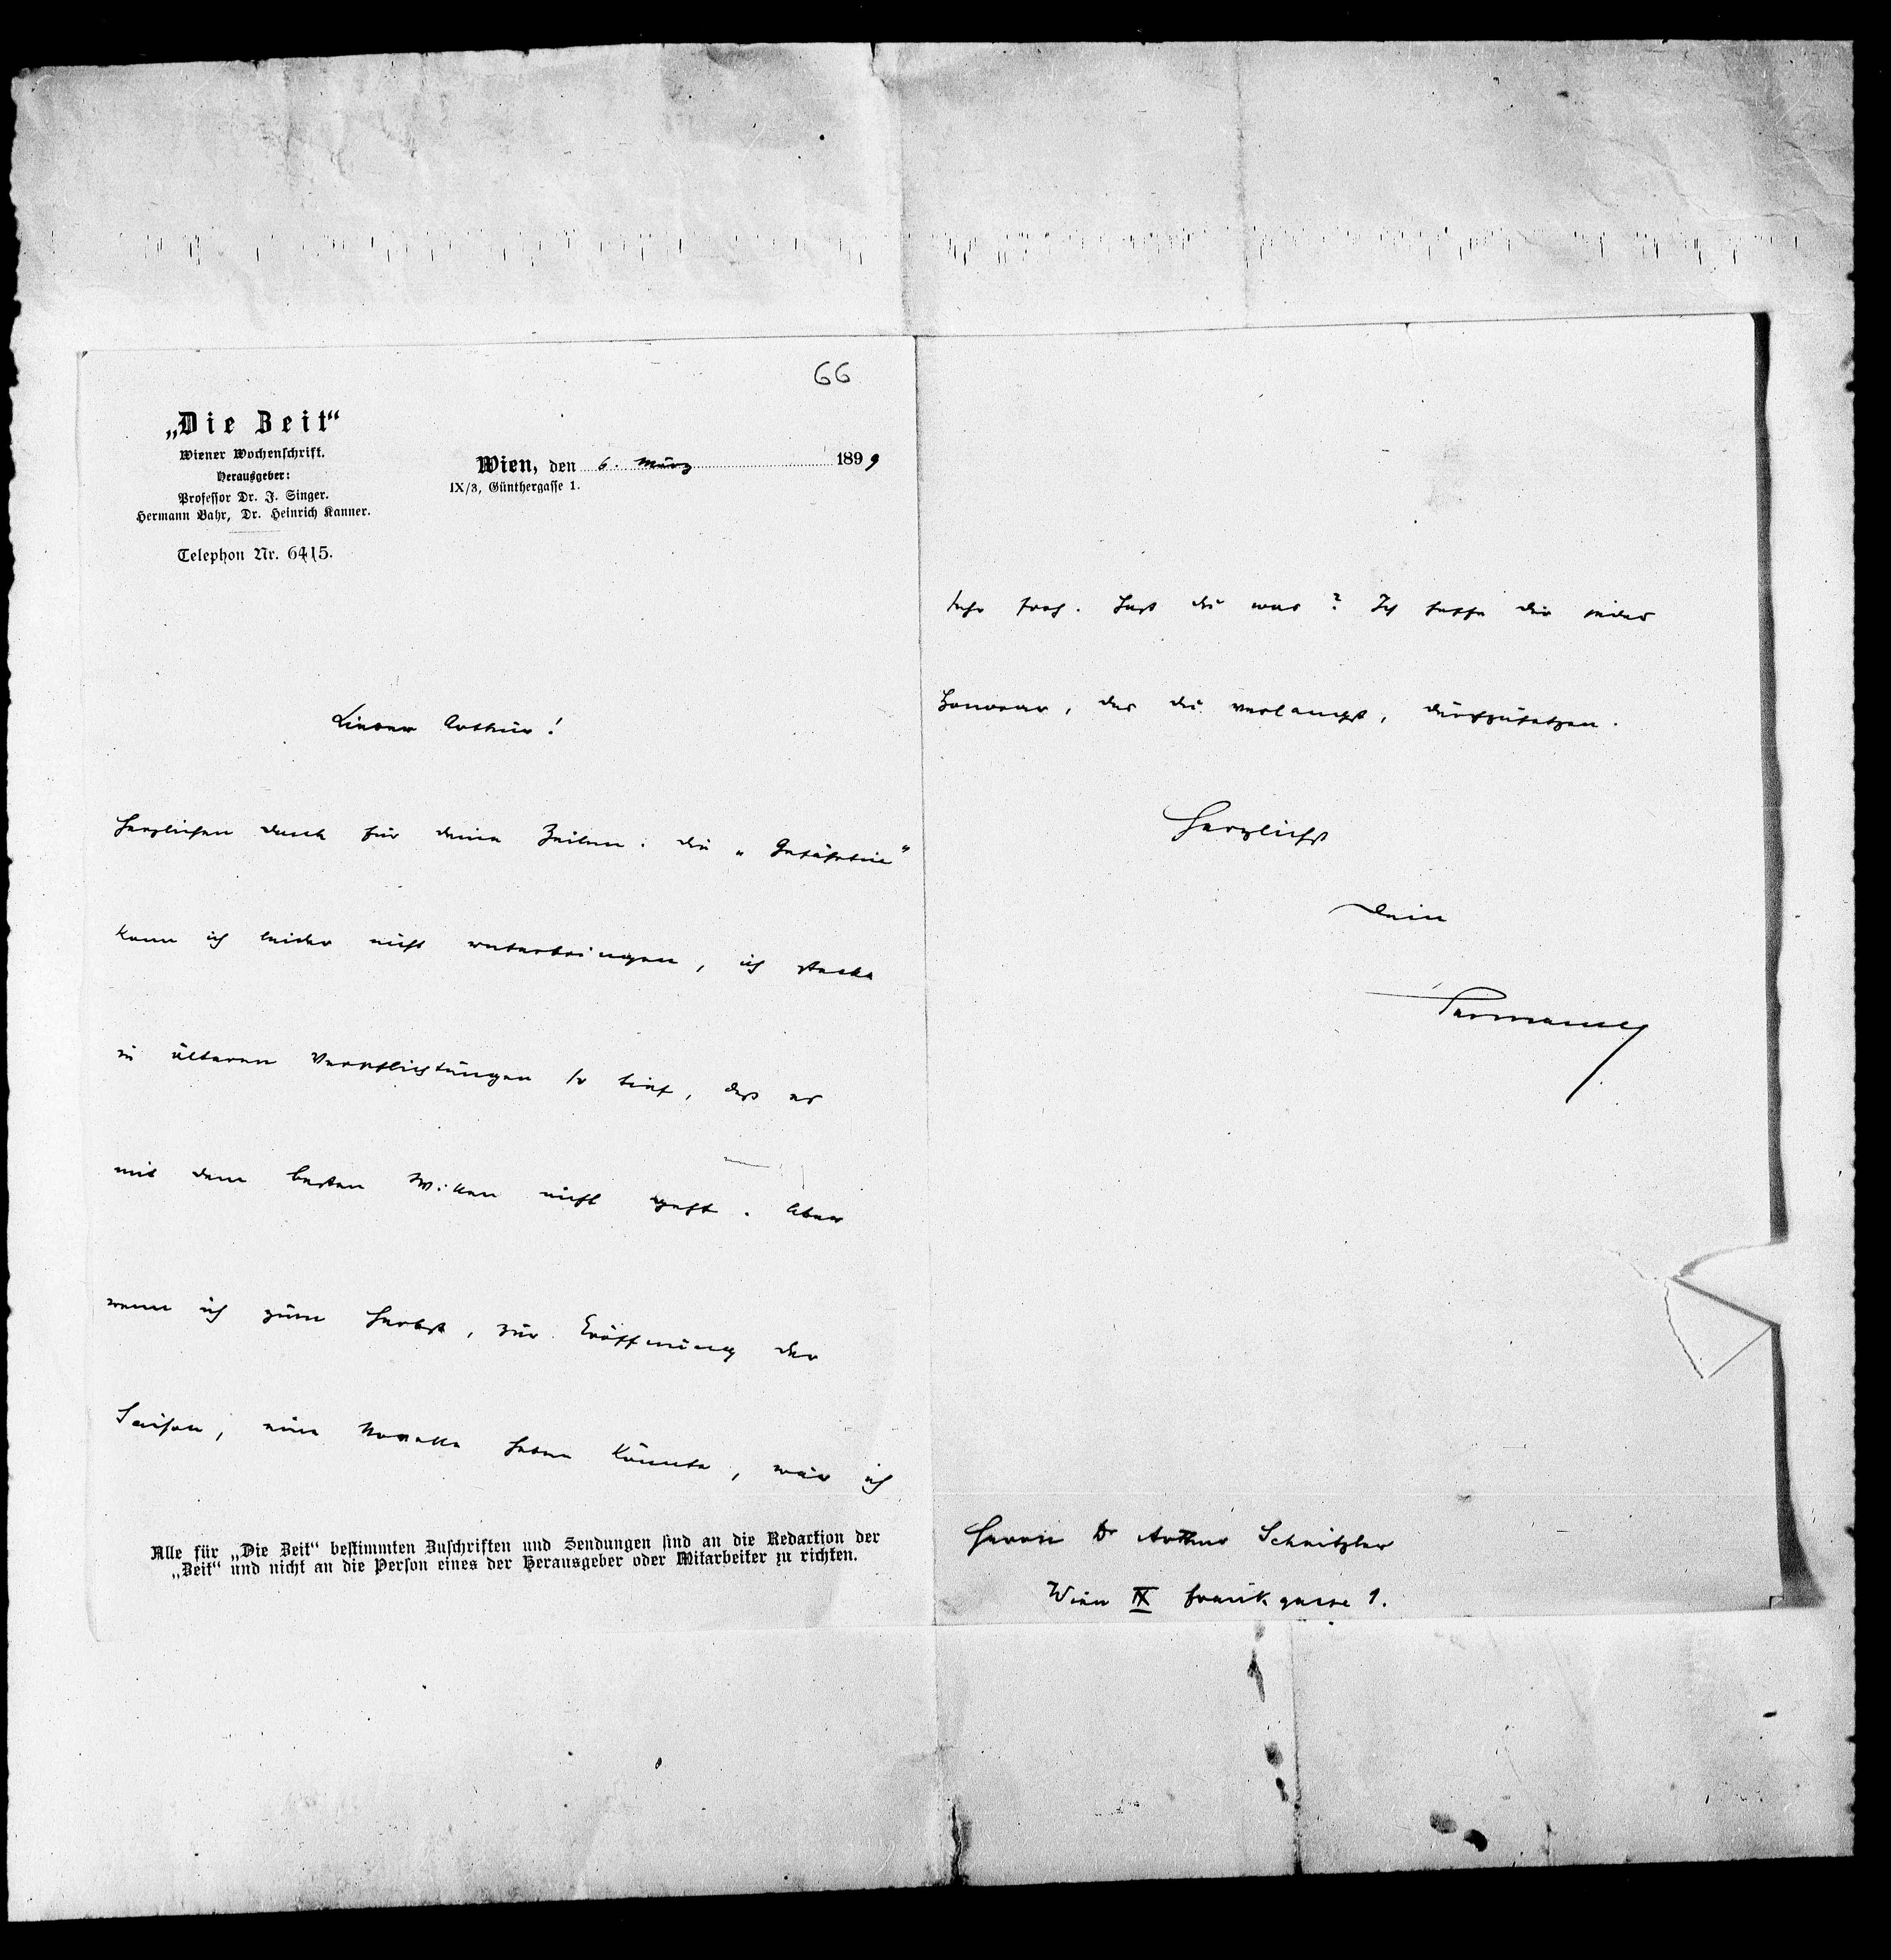 66
„Die Zeit“
Wiener Wochenschrift.
Herausgeber:
Professor Dr. J. Singer.
Hermann Bahr, Dr. Heinrich Kanner.
Telephon Nr. 6415.
Wien, den 6. März 1899
IX/3, Günthergasse 1.
Lieber Arthur!
Herzlichen Dank für deine Zeilen. Die „Gefährtin“
kann ich leider nicht unterbringen, ich stecke
in älteren Verpflichtungen so tief, daß es
mit dem besten Willen nicht geht. Aber
wenn ich zum Herbst, zur Eröffnung der
Saison, eine Novelle haben könnte, wär ich
Alle für „Die Zeit“ bestimmten Zuschriften und Sendungen sind an die Redaction der
„Zeit“ und nicht an die Person eines der Herausgeber oder Mitarbeiter zu richten.
sehr froh. Hast du was? Ich hoffe dir jedes
Honorar, das du verlangst, durchzusetzen.
Herzlichst
Dein
Hermann
Herrn Dr Arthur Schnitzler
Wien IX Frankgasse 1.